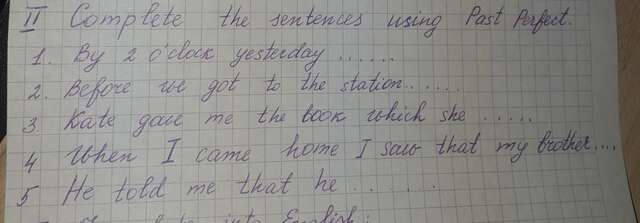 II Complete the sentences using Past Perfect.
1. By 2 o'clock yesterday ......
2. Before we got to the station......
3. Kate gave me the book which she .....
4 When I came home I saw that my brother....
5 He told me that he .......
into English: